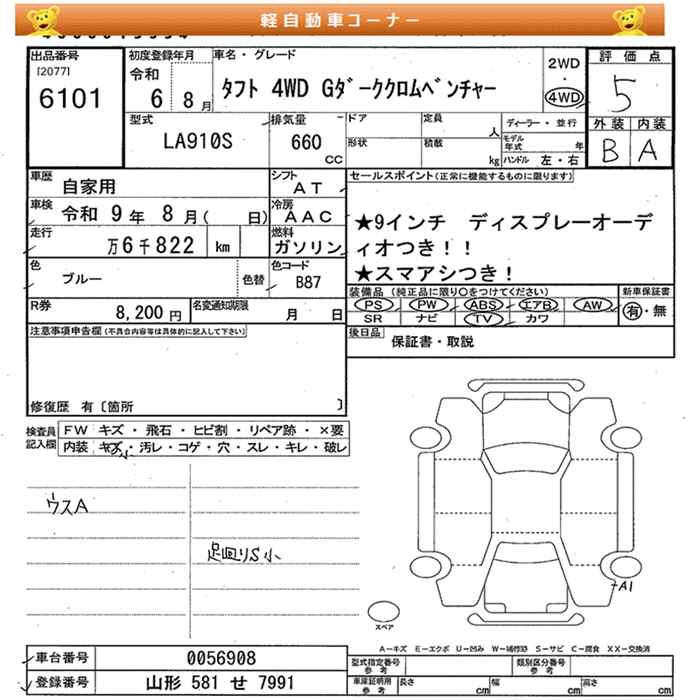 軽自動車コーナー
出品番号
[2077]
6101
初度登録年月
令和
6 8月
車名・グレード
タフト 4WD Gダーククロムベンチャー
2WD
・
4WD
評価点
5
外装 内装
B A
型式
LA910S
排気量
660
CC
ドア
定員
人
形状
積載
kg
ディーラー・並行
モデル年式 年
ハンドル 左・右
車歴
自家用
シフト
AT
車検
令和 9年 8月( 日)
冷房
AAC
走行
万6千822 km
燃料
ガソリン
色
ブルー
色替
色コード
B87
R券
8,200円
名変通知期限
月 日
セールスポイント(正常に機能するものに限ります)
★9インチ ディスプレーオーデ
ィオつき!!
★スマアシつき!
装備品(純正品に限り○をつけてください)
PS PW ABS エアB AW
SR ナビ TV カワ
新車保証書
有・無
後日品
保証書・取説
注意事項申告欄(不具合内容等は具体的に記入して下さい)
修復歴 有〔箇所 〕
検査員
記入欄
FW キズ・飛石・ヒビ割・リペア跡・×要
内装 キズ・汚レ・コゲ・穴・スレ・キレ・破レ
ウスA
足回りS小
A1
スペア
A―キズ E―エクボ U―凹み W―補修跡 S―サビ C―腐食 XX―交換済
車台番号 0056908
登録番号 山形 581 せ 7991
型式指定番号
参考
類別区分番号
参考
車庫証明用
参考
長さ cm 幅 cm 高さ cm